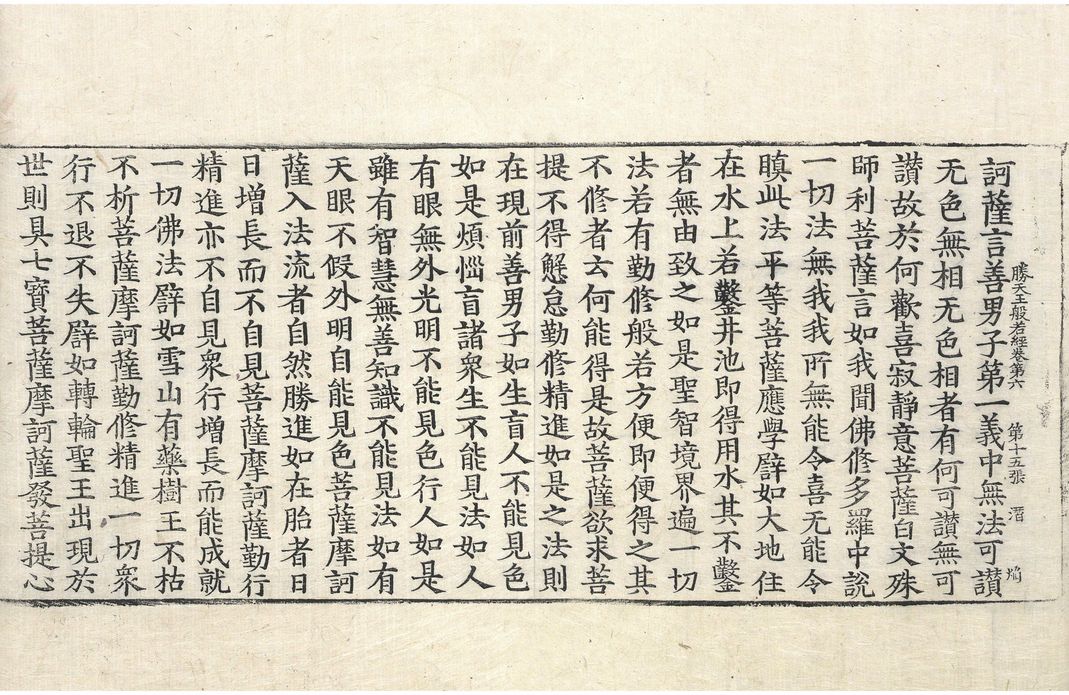 勝天王般若經卷第六 第十五張 潛 焰
訶薩言善男子第一義中無法可讃
无色無相无色相者有何可讃無可
讃故於何歡喜寂靜意菩薩白文殊
師利菩薩言如我聞佛修多羅中說
一切法無我我所無能令喜无能令
瞋此法平等菩薩應學譬如大地住
在水上若鑿井池即得用水其不鑿
者無由致之如是聖智境界遍一切
法若有勤修般若方便即便得之其
不修者云何能得是故菩薩欲求菩
提不得懈怠勤修精進如是之法則
在現前善男子如生盲人不能見色
如是煩惱盲諸衆生不能見法如人
有眼無外光明不能見色行人如是
雖有智慧無善知識不能見法如有
天眼不假外明自能見色菩薩摩訶
薩入法流者自然勝進如在胎者日
日增長而不自見菩薩摩訶薩勤行
精進亦不自見衆行增長而能成就
一切佛法譬如雪山有藥樹王不枯
不析菩薩摩訶薩勤修精進一切衆
行不退不失譬如轉輪聖王出現於
世則具七寶菩薩摩訶薩發菩提心